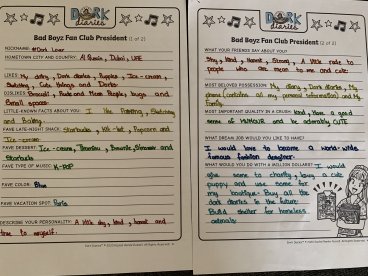 DORK
diaries
Bad Boyz Fan Club President (1 of 2)
NICKNAME: #Dork Lover
HOMETOWN CITY AND COUNTRY: Al Qusais, Dubai, UAE
LIKES: My dog, Dork diaries, Puppies, Ice-cream,
Sketching, Cute things and Darks.
DISLIKES: Broccoli, Rude and Mean People, bugs and
Small spaces.
LITTLE-KNOWN FACTS ABOUT YOU: I like Painting, Sketching
and Baking.
FAVE LATE-NIGHT SNACK: Starbucks, Kit-kat, Popcorn and
Ice-cream
FAVE DESSERT: Ice-cream, Brownie, and
Starbucks
FAVE TYPE OF MUSIC: K-POP
FAVE COLOR: Blue
FAVE VACATION SPOT: Paris
DESCRIBE YOUR PERSONALITY: A little shy, kind, honest and
true to myself.
DORK
diaries
Bad Boyz Fan Club President (2 of 2)
WHAT YOUR FRIENDS SAY ABOUT YOU?
Shy, kind, Honest, Strong, A little rude to
people who are mean to me and cute.
MOST BELOVED POSSESSION: My dog, Dork diaries, My
phone (contains all my personal information) and My
Family.
MOST IMPORTANT QUALITY IN A CRUSH: Kind, Have a good
sense of HUMOUR and be adorably CUTE
WHAT DREAM JOB WOULD YOU LIKE TO HAVE?
I would love to become a world-wide
famous fashion designer.
WHAT WOULD YOU DO WITH A MILLION DOLLARS? I would
give some to charity, buy a cute
puppy and use some for
my boutique. Buy all the
dork diaries in the future.
Build shelter for homeless
animals.